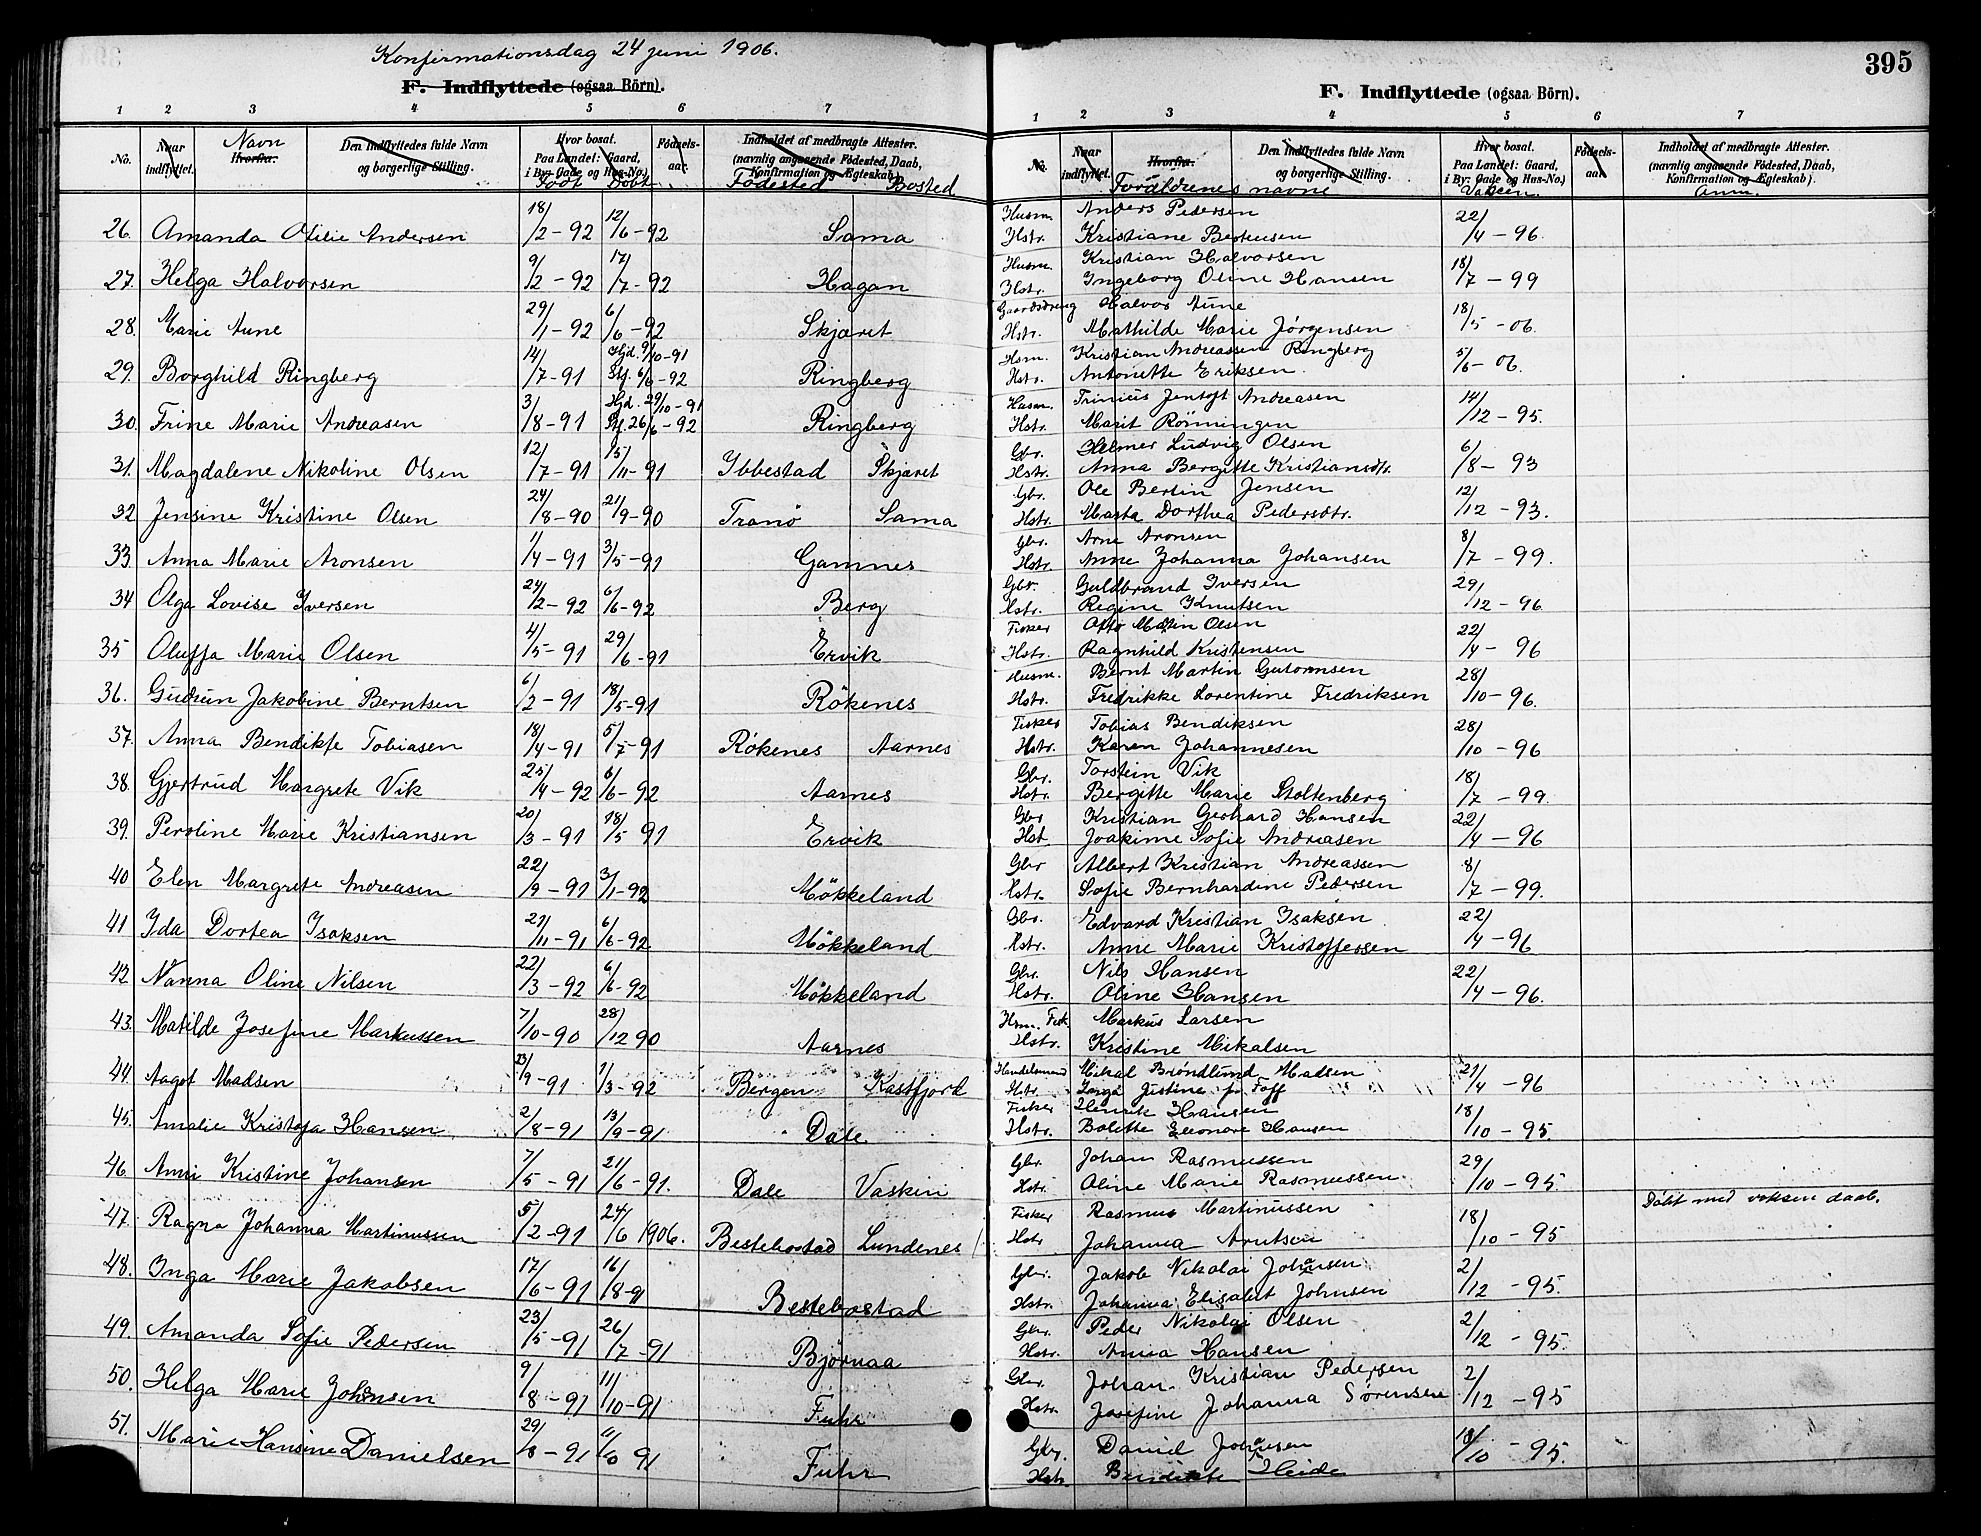 Konfirmationsdag 24 juni 1906.
395
F. Indflyttede (ogsaa Börn).
1 2 3 4 5 6 7
No. Naar indflyttet. Navn Hvorfra. Den Indflyttedes fulde Navn og borgerlige Stilling. Hvor bosat. Paa Landet: Gaard, i By: Gade og Hus-No.) Födsels-aar. Indholdet af medbragte Attester. (navnlig angaaende Födested, Daab, Konfirmation og Ægteskab).
Födt Döbt Födested Bosted
26. Amanda Otilie Andersen 18/2-92 12/6-92 Sama
27. Helga Halvorsen 9/2-92 17/7-92 Hagan
28. Marie Aune 29/1-92 6/6-92 Skjæret
29. Borghild Ringberg 14/7-91 Hjd. 9/10-91 Stf. 6/6-92 Ringberg
30. Trine Marie Andreasen 3/8-91 Hjd. 29/10-91 26/6-92 Ringberg
31. Magdalene Nikoline Olsen 12/7-91 15/11-91 Ybbestad Skjæret
32 Jensine Kristine Olsen 24/8-90 21/9-90 Tranö Sama
33 Anna Marie Aronsen 1/4-91 3/5-91 Gamnes
34 Olga Lovise Iversen 24/2-92 6/6-92 Berg
35 Oluffa Marie Olsen 4/5-91 29/6-91 Ervik
36. Gudrun Jakobine Berntsen 6/2-91 18/5-91 Rökenes
37. Anna Bendikte Tobiasen 18/4-91 5/7-91 Rökenes Aarnes
38. Gjertrud Margrete Vik 25/4-92 6/6-92 Aarnes
39. Peroline Marie Kristiansen 20/3-91 18/5 91 Ervik
40 Elen Margrete Andreasen 22/9-91 3/1-92 Mökkeland
41 Ida Dortea Isaksen 27/11-91 6/6-92 Mökkeland
42 Nanna Oline Nilsen 22/3-92 6/6-92 Mökkeland
43. Matilde Josefine Markussen 7/10-90 28/12 90 Aarnes
44. Aagot Madsen 23/9-91 1/3-92 Bergen Kastfjord
45. Amalie Kristofa Hansen 2/8-91 13/9-91 Dale
46. Anni Kristine Johansen 7/5-91 21/6-91. Dale Vaskin
47. Ragna Johanna Martinussen 5/2-91 24/6 1906. Bestebostad Lundenes
48. Inga Marie Jakobsen 17/6-91 16/8-91 Bestebostad
49. Amanda Sofie Pedersen 23/5-91 26/7-91 Björnaa
50. Helga Marie Johansen 9/8-91 11/10-91 Fuhr
51. Marie Hansine Danielsen 29/8-91 91 Fuhr
F. Indflyttede (ogsaa Börn).
1 2 3 4 5 6 7
No. Naar indflyttet. Hvorfra. Den Indflyttedes fulde Navn og borgerlige Stilling. Hvor bosat. Paa Landet: Gaard, i By: Gade og Hus-No.) Födsels-aar. Indholdet af medbragte Attester. (navnlig angaaende Födested, Daab, Konfirmation og Ægteskab).
Forældrenes navne Vakcin. Anm.
Husm. Anders Pedersen 22/4-96.
Hstr. Kristiane Berntsen
Husm. Kristian Halvorsen 18/7-99
Hstr. Ingeborg Oline Hansen
Gaardsdreng Halvor Aune 18/5-06.
Hstr. Mathilde Marie Jörgensen
Husm. Kristian Andreassen Ringberg 5/6-06.
Hstr. Antonette Eriksen.
Husm. Trinius Jentoft Andreasen 14/12-95.
Hstr. Marit Rönningen
Gbr. Helmer Ludvig Olsen 6/8-93
Hstr. Anna Bergitte Kristiansdtr.
Gbr. Ole Bertin Jensen 12/12-93.
Hstr. Marta Dorthea Pedersdtr.
Gbr. Arne Aronsen 8/7-99.
Hstr. Anne Johanna Johansen
Gbr. Guldbrand Iversen 29/12-96.
Hstr. Regine Knutsen
Fisker Otto Olsen 22/4-96
Hstr. Ragnhild Kristensen
Husm. Bernt Martin Gutormsen 28/10-96.
Hstr. Fredrikke Lorentine Fredriksen
Fisker Tobias Bendiksen 28/10-96
Hstr. Karen Johannesen
Gbr. Torstein Vik 18/7-99.
Hstr. Bergitte Marie Stoltenberg
Gbr Kristian Gerhard Hansen 22/4-96
Hst. Joakime Sofie Andreasen
Gbr Albert Kristian Andreassen 8/7-99.
Hstr. Sofie Bernhardine Pedersen
Gbr. Edvard Kristian Isaksen 22/4-96
Hstr. Anne Marie Kristoffersen
Gbr. Nils Hansen 22/4-96.
Hstr. Oline Hansen
Hsm. Fisk. Markus Larsen
Hstr. Kristine Mikalsen
Handelsmand Mikal Bröndlund Madsen 21/4-96
Hstr. Inga Justine f. Foff
Fisker Henrik Hansen 18/10-95.
Hstr. Bolette Eleonore Hansen
Gbr. Johan Rasmussen 29/10-95.
Hstr. Oline Marie Rasmussen
Fisker Rasmus Martinussen 18/10-95 Döbt med voksen daab.
Hstr Johanna Arntsen
Gbr. Jakob Nikolai Johansen 2/12-95.
Hstr. Johanna Elisabet Johnsen
Gbr. Peder Nikolai Olsen 2/12-95.
Hstr. Anna Hansen
Gbr. Johan Kristian Pedersen 2/12-95
Hstr. Josefine Johanna Sörensen
Gbr. Daniel Johansen 18/10-95.
Hstr. Bendikte Heide